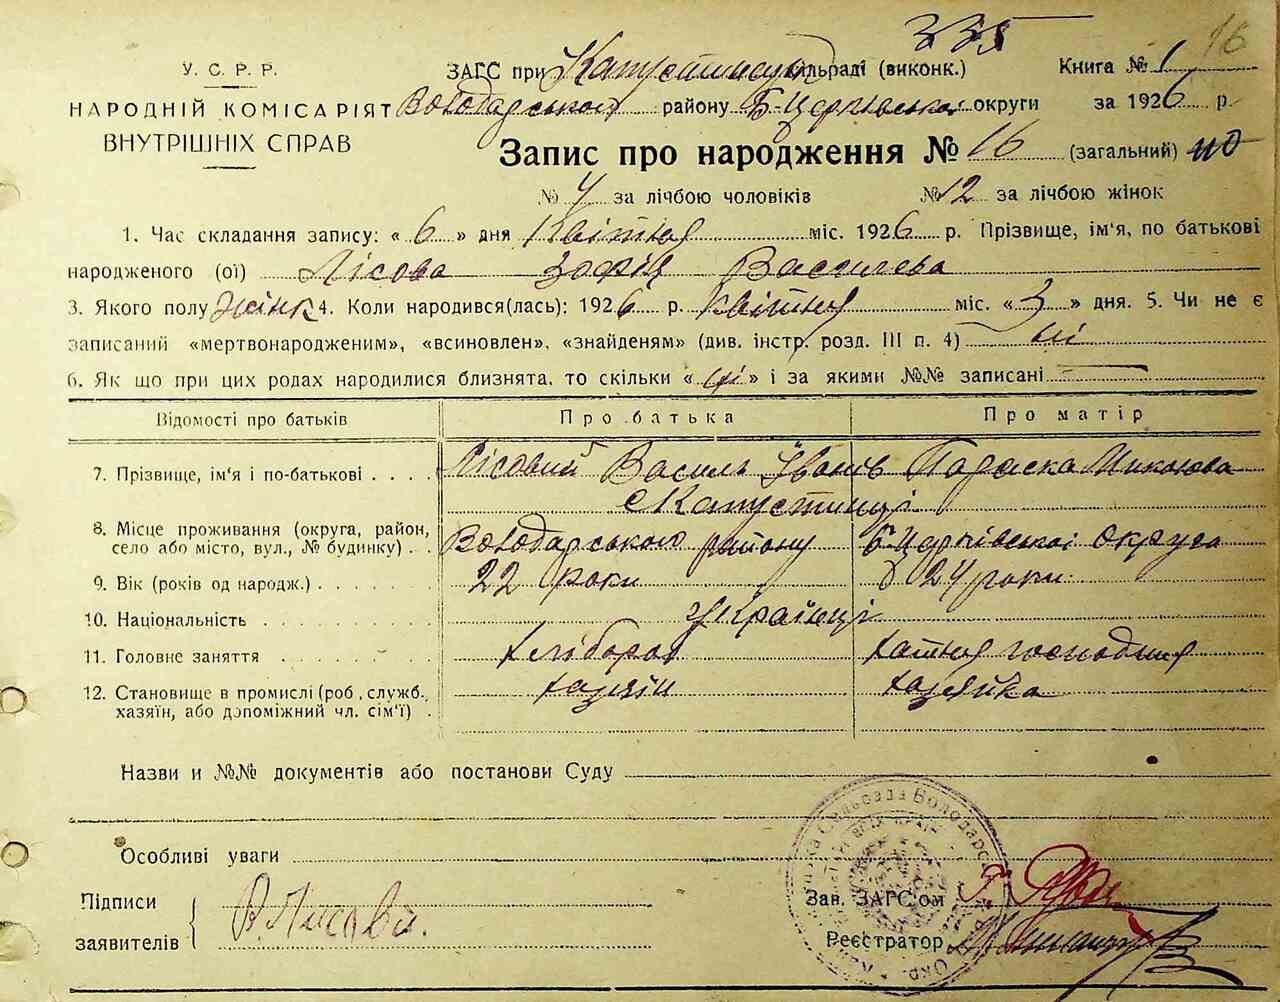 335 16
У. С. Р. Р. ЗАГС при Капустинській сільраді (виконк.) Книга № 1
НАРОДНІЙ КОМІСАРІЯТ Володарського району Б-Церківської округи за 1926 р.
ВНУТРІШНІХ СПРАВ
Запис про народження № 16 (загальний)
№ 4 за лічбою чоловіків № 12 за лічбою жінок
1. Час складання запису: « 6 » дня Квітня міс. 1926 р. Прізвище, ім'я, по батькові
народженого (ої) Лісова Зофія Василева
3. Якого полу жінк 4. Коли народився(лась): 1926 р. Квітня міс. « 3 » дня. 5. Чи не є
записаний «мертвонародженим», «всиновлен», «знайденям» (див. інстр. розд. III п. 4) ні
6. Як що при цих родах народилися близнята, то скільки « ні » і за якими №№ записані —
Відомості про батьків Про батька Про матір
7. Прізвище, ім'я і по-батькові . . . . Лісовий Василь Іванів Параска Миколова
с Капустинці
8. Місце проживання (округа, район,
село або місто, вул., № будинку) . . Володарського району Б-Церківської округа
9. Вік (років од народж.) . . . . . 22 роки 24 роки
10. Національність . . . . . . . . Українці
11. Головне заняття . . . . . . . хлібороб хатня господиня
12. Становище в промислі (роб., служб., хазяїн хазяйка
хазяїн, або допоміжний чл. сім'ї) .
Назви и №№ документів або постанови Суду
Особливі уваги
Підписи
заявителів В. Лисова.
Зав. ЗАГС'ом
Реєстратор